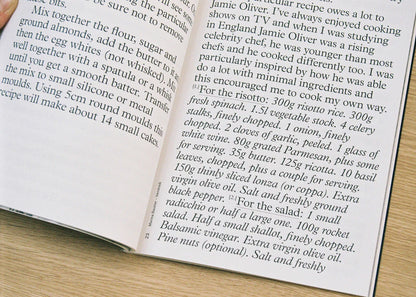 will see some
be sure not to remove
bits.
Mix together the flour, sugar and
ground almonds, add the butter to it and
then the egg whites (not whisked). Mix
well together with a spatula or a whisk
until you get a smooth batter. Transfer
the mix to small silicone or metal
moulds. Using 5cm round moulds this
recipe will make about 14 small cakes.
particular recipe owes a lot to
Jamie Oliver. I've always enjoyed cooking
shows on TV and when I was studying
in England Jamie Oliver was a rising
celebrity chef, he was younger than most
chefs and he cooked differently too. I was
particularly inspired by how he was able
do a lot with minimal ingredients and
this encouraged me to cook my own way.
[1]For the risotto: 300g risotto rice. 300g
fresh spinach. 1.5l vegetable stock. 4 celery
stalks, finely chopped. 1 onion, finely
chopped. 2 cloves of garlic, peeled. 1 glass of
white wine. 80g grated Parmesan, plus some
for serving. 35g butter. 125g ricotta. 10 basil
leaves, chopped, plus a couple for serving.
150g thinly sliced lonza (or coppa). Extra
virgin olive oil. Salt and freshly ground
black pepper. [2]For the salad: 1 small
radicchio or half a large one. 100g rocket
salad. Half a small shallot, finely chopped.
Balsamic vinegar. Extra virgin olive oil.
Pine nuts (optional). Salt and freshly
23